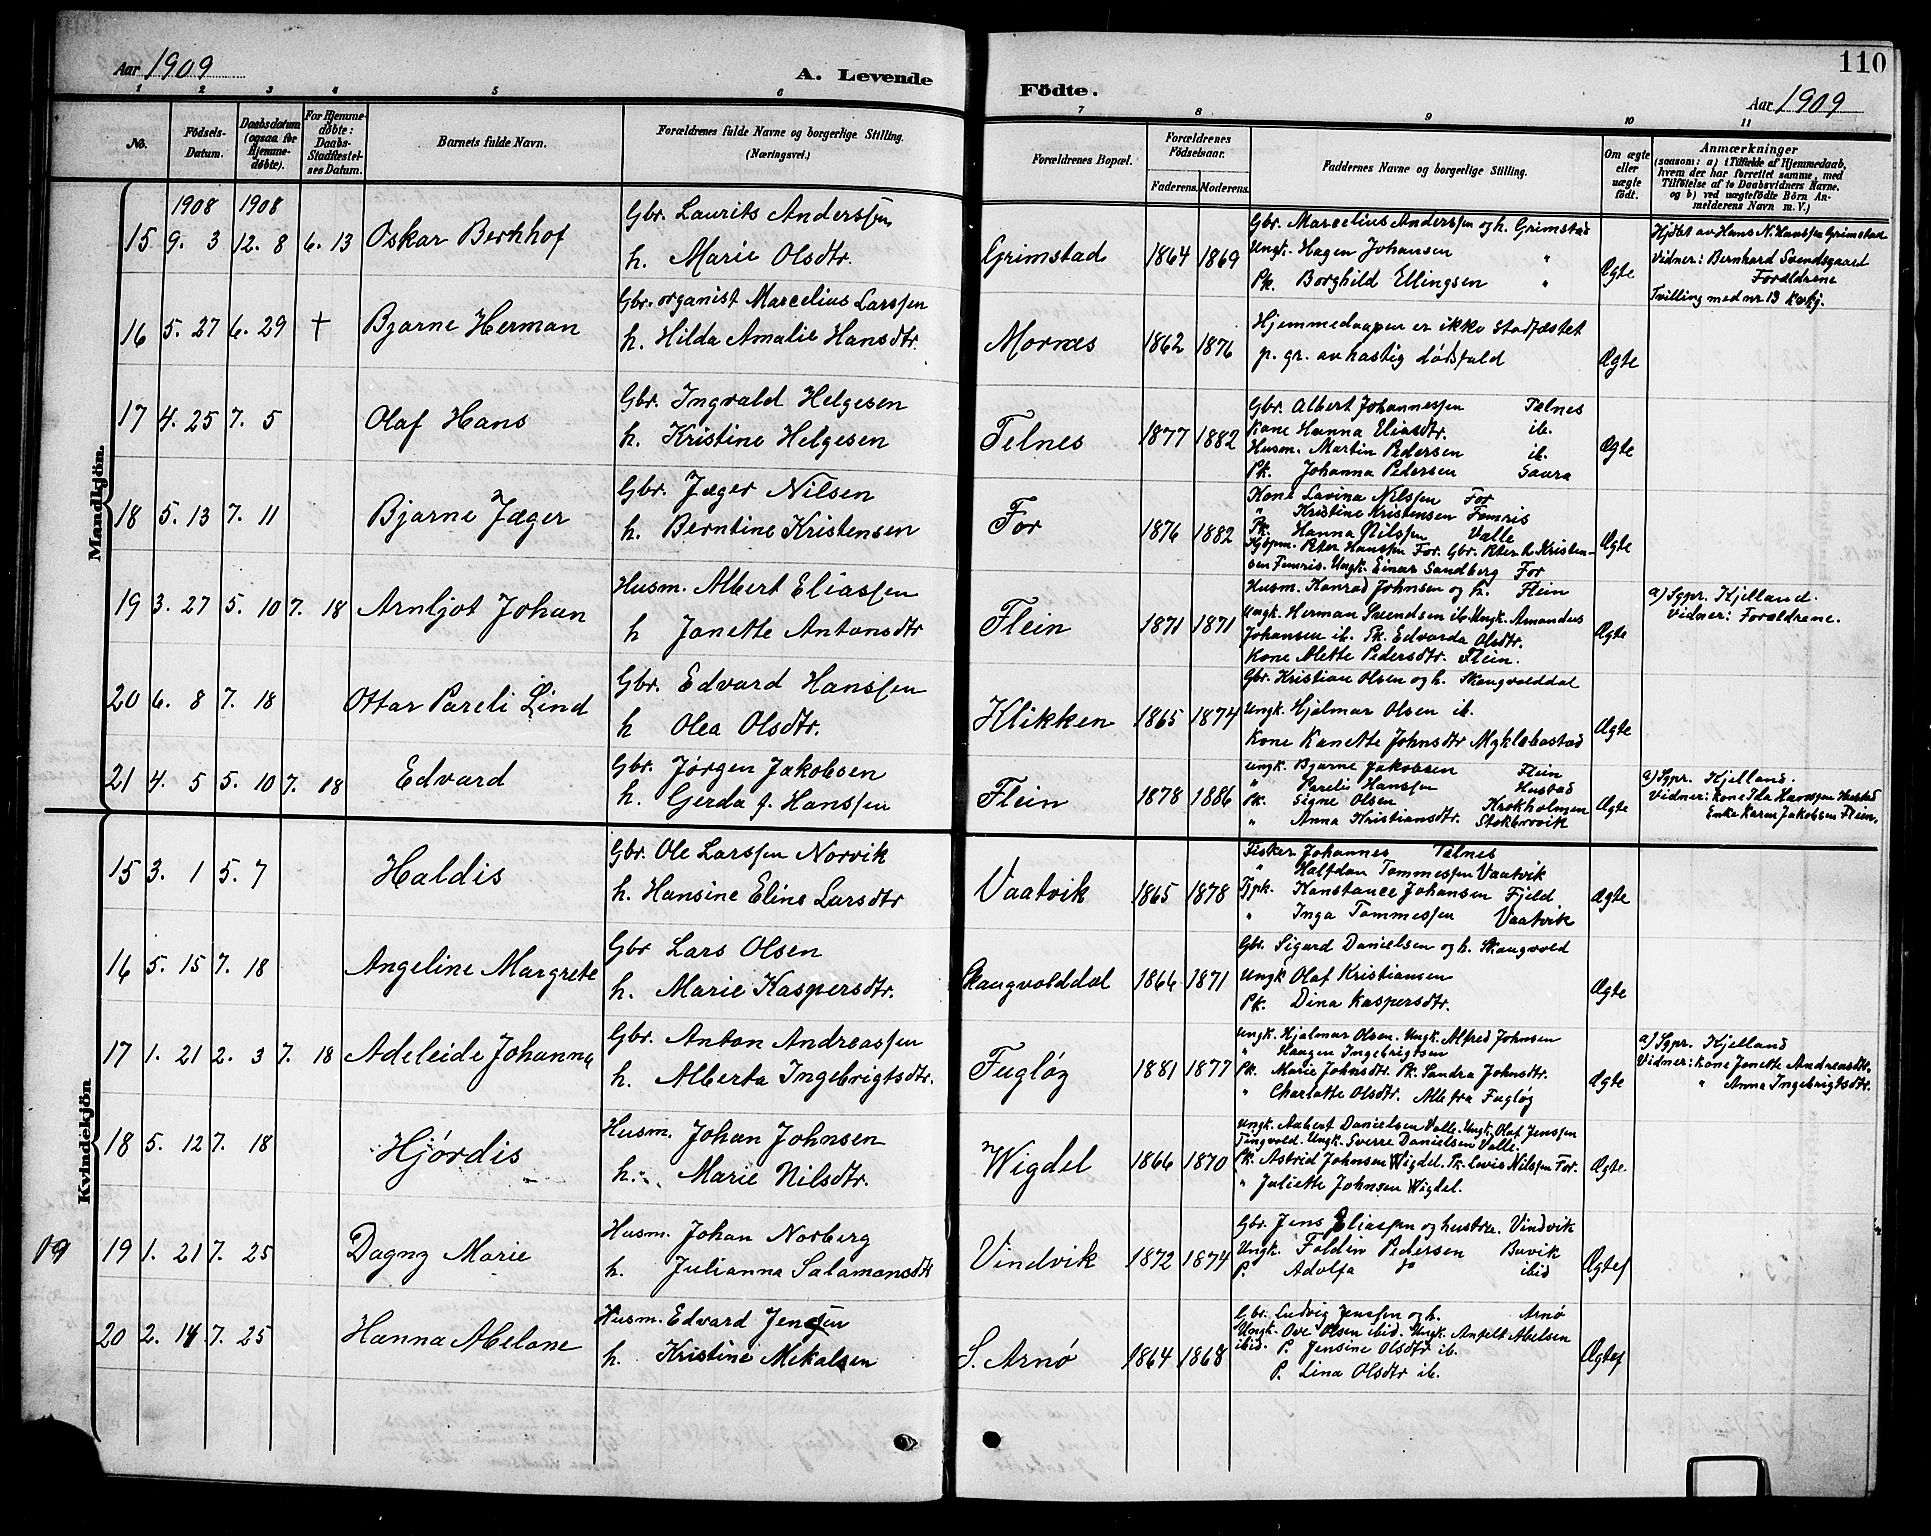 Aar 1909
A. Levende
Födte.
110
Aar 1909
1 2 3 4 5 6 7 8 9 10 11
No.
Födsels-Datum.
Daabsdatum (ogsaa for Hjemmedøbte).
For Hjemmedøbte: Daabs-Stadfæstelses Datum.
Barnets fulde Navn.
Forældrenes fulde Navne og borgerlige Stilling.
(Næringsvei.)
Forældrenes Bopæl.
Forældrenes Fødselsaar.
Faderens. Moderens.
Faddernes Navne og borgerlige Stilling.
Om ægte eller uægte født.
Anmærkninger
(saasom: a) i Tilfælde af Hjemmedaab,
hvem der har forrettet samme, med
Tilføielse af to Daabsvidners Navne.
og b) ved uægtefødte Börn An-
melderens Navn m. V.)
Mandkjön.
1908 1908
15 9. 3 12. 8 6. 13 Oskar Berkhof
Gbr. Laurits Anderssen
h. Marie Olsdtr.
Grimstad 1864 1869
Gbr. Marcelius Anderssen og h. Grimstad
Ungk. Hagen Johansen "
Pk. Borghild Ellingsen "
Ægte
Hjdbt av Hans N. Hanssen Grimstad
Vidner: Bernhard Svendsgaard
Forældrene
Tvilling med nr 13 kvkj.
16 5. 27 6. 29 † Bjarne Herman
Gbr. organist Marcelius Larssen
h. Hilda Amalie Hansdtr.
Mornes 1862 1876
Hjemmedaapen er ikke stadfæstet
p. gr. av hastig dødsfald
Ægte
17 4. 25 7. 5 Olaf Hans
Gbr. Ingvald Helgesen
h. Kristine Helgesen
Telnes 1877 1882
Gbr. Albert Johannessen Telnes
Kone Hanna Eliasdtr. ib.
Husm. Martin Pedersen ib.
Pk. Johanna Pedersen Saura
Ægte
18 5. 13 7. 11 Bjarne Jæger
Gbr. Jæger Nilsen
h. Berntine Kristensen
For 1876 1882
Kone Lovina Nilssen For
" Kristine Kristensen Femris
Pk. Hanna Nilssen Valle
Kjøpm. Peter Hanssen For. Gbr. Peter L. Kristen-
sen Femris. Ungk. Einar Sandberg For
Ægte
19 3. 27 5. 10 7. 18 Arnljot Johan
Husm. Albert Eliassen
h Janette Antonsdtr
Flein 1871 1871
Husm. Konrad Johnsen og h. Flein
Ungk. Herman Svendsen ib. Ungk. Amandus
Johansen ib. Pk. Edvarda Olsdtr.
Kone Alette Pedersdtr. Flein.
Ægte
a) Sgpr. Kjelland.
Vidner: Forældrene.
20 6. 8 7. 18 Ottar Pareli Lind
Gbr. Edvard Hanssen
h Olea Olsdtr.
Klikken 1865 1874
Gbr. Kristian Olsen og h. Skaugvolddal
Ungk. Hjalmar Olsen ib.
Kone Kanette Johnsdtr Myklebostad
Ægte
21 4. 5 5. 10 7. 18 Edvard
Gbr. Jørgen Jakobsen
h. Gerda J. Hanssen
Flein 1878 1886
Ungk. Bjarne Jakobsen Flein
" Parelis Hanssen Hustad
Pk. Signe Olsen Krokholmen
" Anna Kristiansdtr.
Ægte
a) Sgpr. Kjelland.
Vidner: Kone Ida Hanssen Hustad
Enke Karen Jakobsen Flein.
Kvindekjön
15 3. 1 5. 7 Haldis
Gbr. Ole Larssen Norvik
h. Hansine Eline Larsdtr
Vaatvik 1865 1878
Fisker Johannes Telnes
" Halfdan Tommessen Vaatvik
Tjpk. Konstance Johansen Fjeld
" Inga Tommessen Vaatvik
Ægte
16 5. 15 7. 18 Angeline Margrete
Gbr Lars Olsen
h. Marie Kaspersdtr.
Skaugvolddal 1866 1871
Gbr. Sigurd Danielsen og h. Skaugvold
Ungk Olaf Kristiansen
Pk. Dina Kaspersdtr.
Ægte
17 1. 21 2. 3 7. 18 Adeleide Johanna
Gbr. Anton Andreassen
h. Alberta Ingebrigtsdtr.
Fugløy 1881 1877
Ungk. Hjalmar Olsen. Ungk. Alfred Johnsen
" Haagen Ingebrigtsen
Pk. Marie Johnsdtr. Pk. Sandra Johnsdtr.
" Charlotte Olsdtr. Alle fra Fugløy
Ægte
a) Sgpr. Kjelland
Vidner: Kone Janette Andreasdtr.
" Anna Ingebrigtsdtr.
18 5. 12 7. 18 Hjørdis
Husm. Johan Johnsen
h. Marie Nilsdtr.
Wigdel 1866 1870
Ungk. Aabert Danielsen Valle. Ungk. Olaf Jenssen
Tingvold. Ungk. Sverre Danielsen Valle.
Pk. Astrid Johnsen Wigdel. Pk. Lovise Nilssen For.
" Juliette Johnsen Wigdel.
Ægte
09 19 1. 21 7. 25 Dagny Marie
Husm. Johan Norberg
h. Julianna Salamonsdtr
Vindvik 1872 1874
Gbr. Jens Eliassen og hustru. Vindvik
Ungk. Foldin Pedersen Buvik
P. Adolfa do ibid
Ægtef
20 2. 14 7. 25 Hanna Abelone
Husm. Edvard Jenssen
h. Kristine Mikalsen
S. Arnø 1864 1868
Gbr. Ludvig Jenssen og h. Arnø
Ungk. Ove Olsen ibid. Ungk. Anfelt Abelsen
ibid. P. Jensine Olsdtr ib.
P. Lina Olsdtr ib.
Ægtef